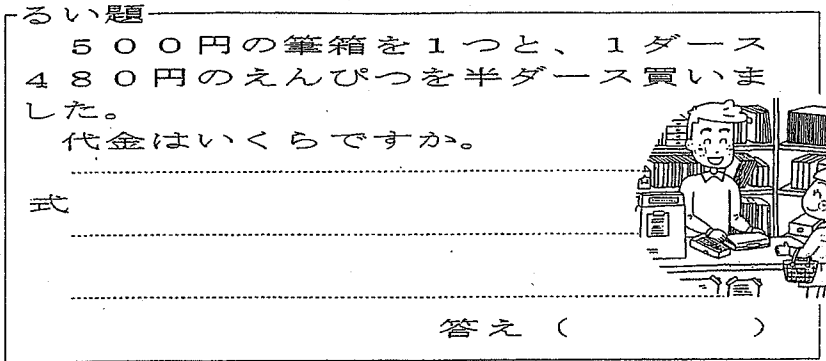 るい題
５００円の筆箱を１つと、１ダース
４８０円のえんぴつを半ダース買いま
した。
代金はいくらですか。
式
答え（　　　　　）